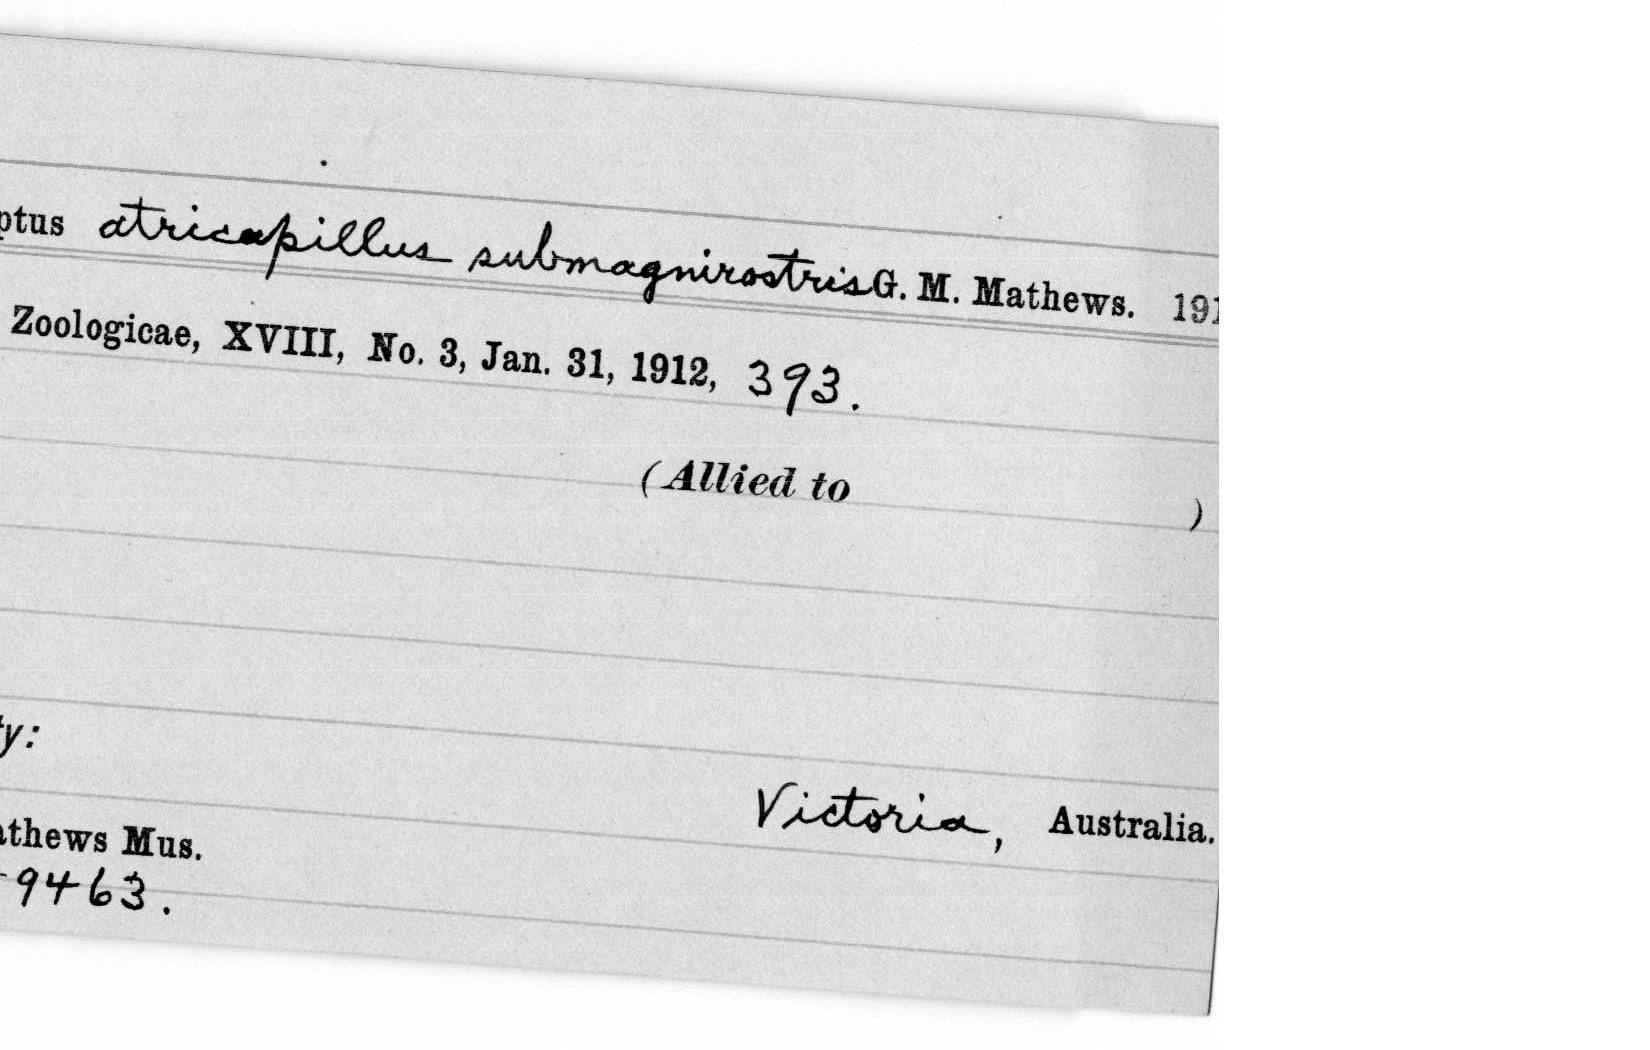 ptus atricapillus submagnirostris G. M. Mathews. 191
Zoologicae, XVIII, No. 3, Jan. 31, 1912, 393.
(Allied to )
ty:
Victoria, Australia.
athews Mus.
9463.